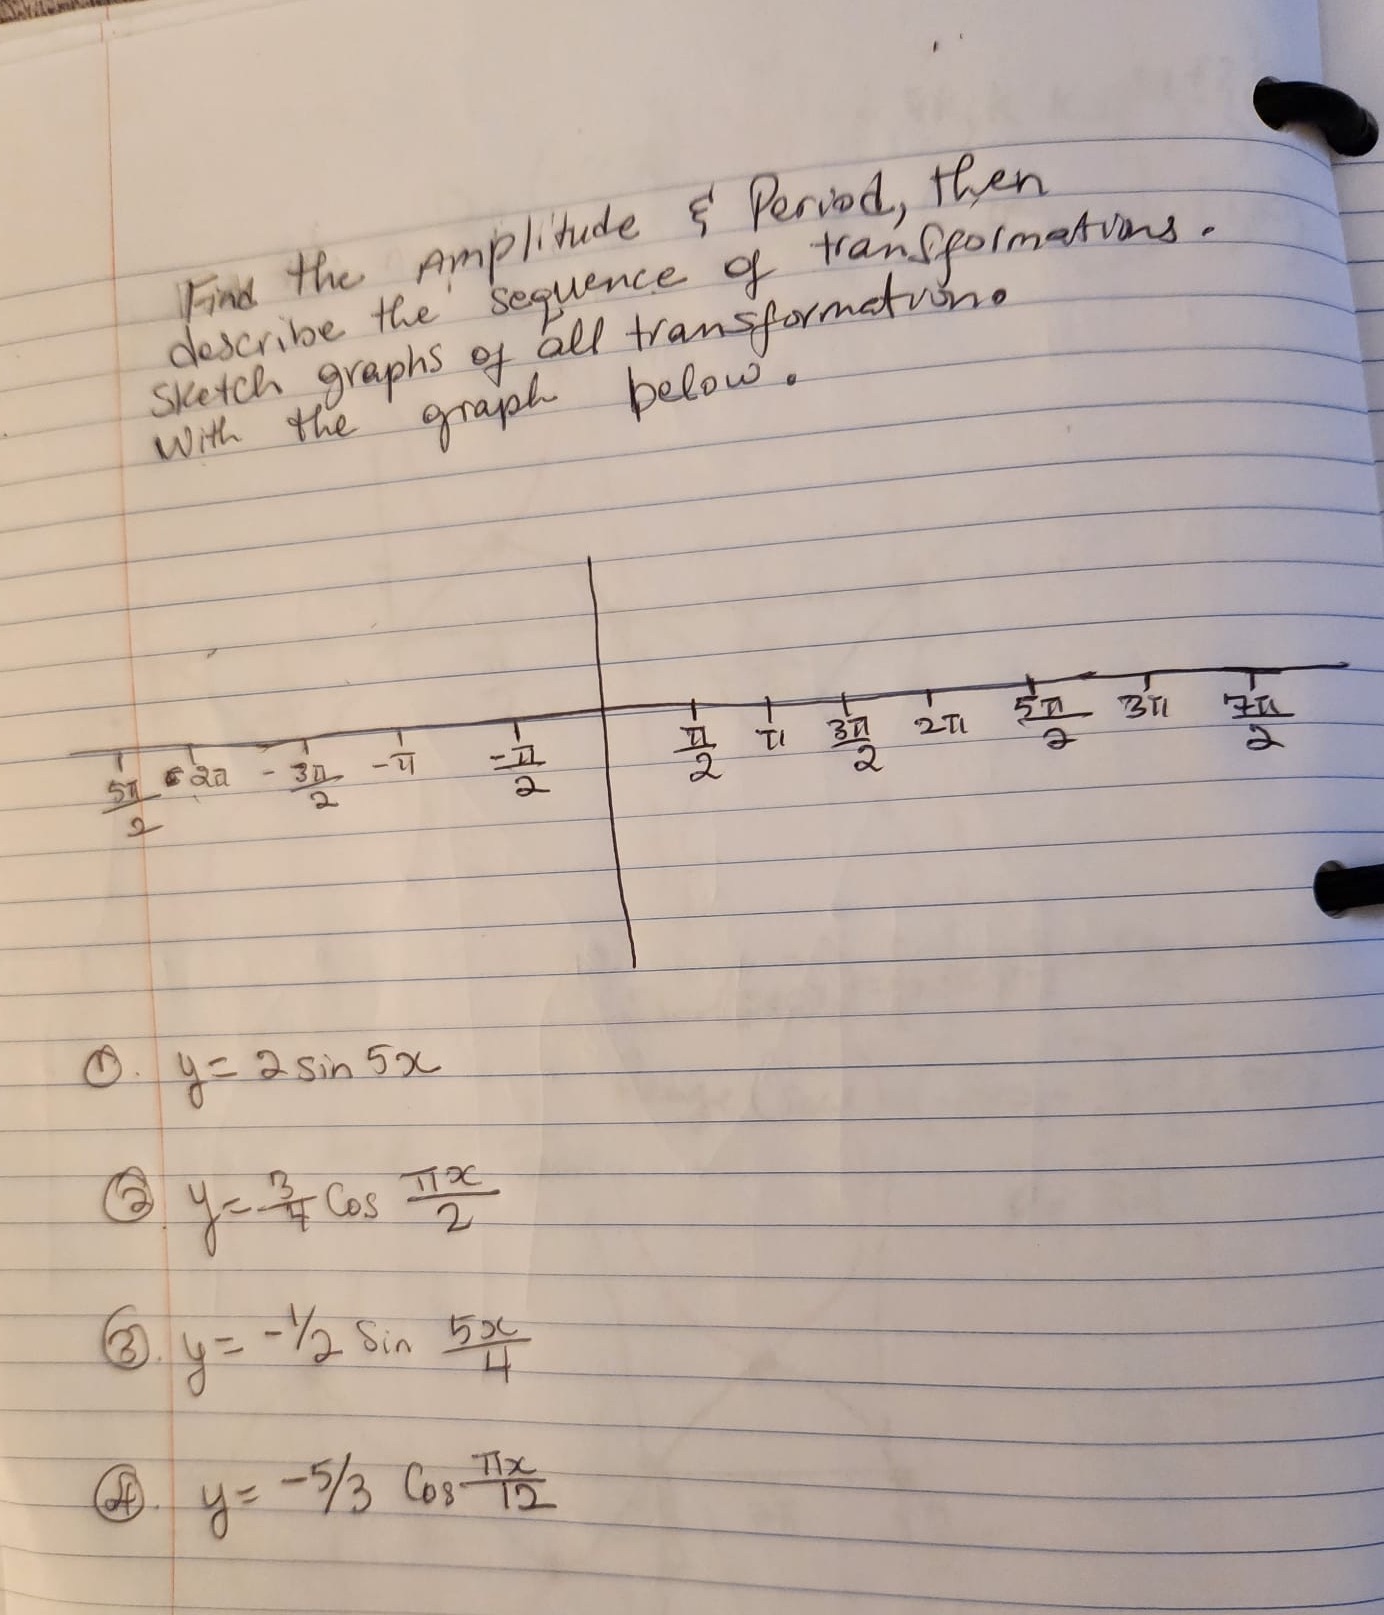 Find the Amplitude & Period, then
describe the sequence of transformations.
Sketch graphs of all transformation.
With the graph below.
5π/2 -2π -3π/2 -π -π/2 π/2 π 3π/2 2π 5π/2 3π 7π/2
①. y = 2 sin 5x
②. y = 3/4 Cos πx/2
③. y = -1/2 Sin 5x/4
④. y = -5/3 Cos πx/12